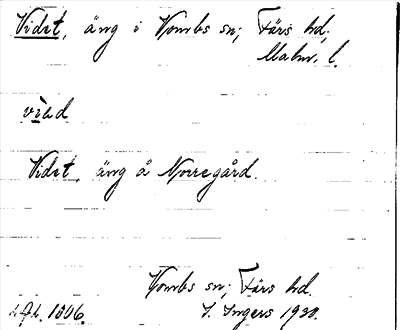 Videt, äng i Vombs sn; Färs hd,
Malm. l.
Videt, äng å Norregård.
Vombs sn; Färs hd.
I. Ingers 1930.